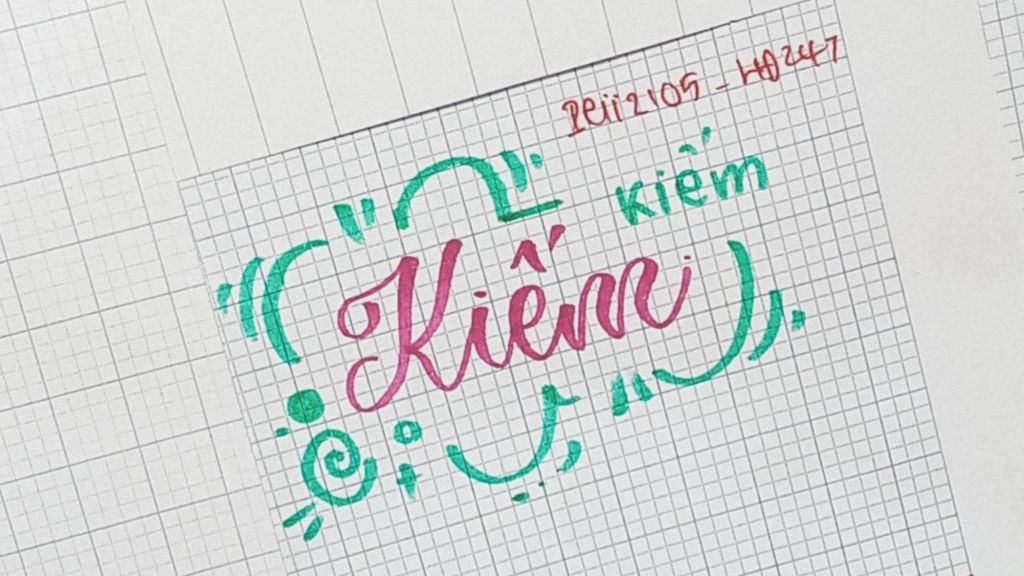 Peii2105 - HD247
kiếm
Kiếm